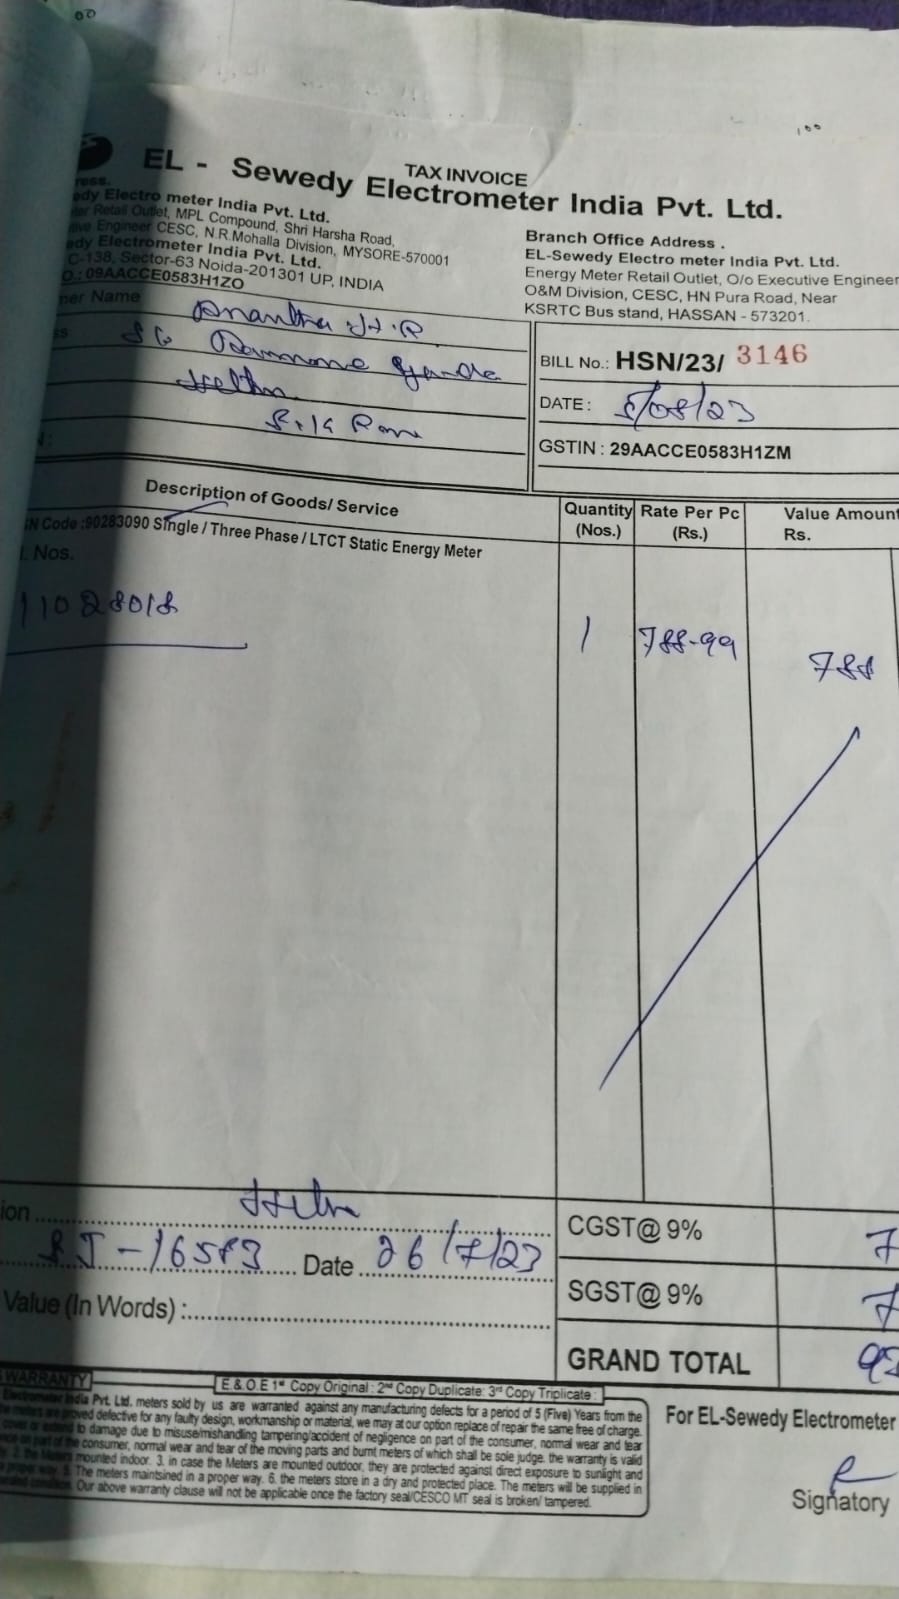 TAX INVOICE
EL - Sewedy Electrometer India Pvt. Ltd.
ress.
edy Electro meter India Pvt. Ltd.
ter Retail Outlet, MPL Compound, Shri Harsha Road,
tive Engineer CESC, N.R.Mohalla Division, MYSORE-570001
edy Electrometer India Pvt. Ltd.
C-138, Sector-63 Noida-201301 UP, INDIA
O.: 09AACCE0583H1ZO
Branch Office Address .
EL-Sewedy Electro meter India Pvt. Ltd.
Energy Meter Retail Outlet, O/o Executive Engineer
O&M Division, CESC, HN Pura Road, Near
KSRTC Bus stand, HASSAN - 573201.
mer Name Anantha H.R
ss
BILL No.: HSN/23/ 3146
DATE: 5/08/23
GSTIN : 29AACCE0583H1ZM
N:
Description of Goods/ Service
Quantity (Nos.)
Rate Per Pc (Rs.)
Value Amount Rs.
SN Code :90283090 Single / Three Phase / LTCT Static Energy Meter
l. Nos.
11028018 1 788-99 788
ion
RJ-16583 Date 26/7/23
Value (In Words) :
CGST@ 9% 7
SGST@ 9% 7
GRAND TOTAL 93
WARRANTY
E.& O.E 1st Copy Original : 2nd Copy Duplicate: 3rd Copy Triplicate :
Electrometer India Pvt. Ltd. meters sold by us are warranted against any manufacturing defects for a period of 5 (Five) Years from the
the meters are proved defective for any faulty design, workmanship or material, we may at our option replace of repair the same free of charge.
cover or extend to damage due to misuse/mishandling tampering/accident of negligence on part of the consumer, normal wear and tear
on part of the consumer, normal wear and tear of the moving parts and burnt meters of which shall be sole judge. the warranty is valid
mounted indoor. 3. in case the Meters are mounted outdoor, they are protected against direct exposure to sunlight and
5. The meters maintsined in a proper way. 6. the meters store in a dry and protected place. The meters will be supplied in
Our above warranty clause will not be applicable once the factory seal/CESCO MT seal is broken/ tampered.
For EL-Sewedy Electrometer
Signatory